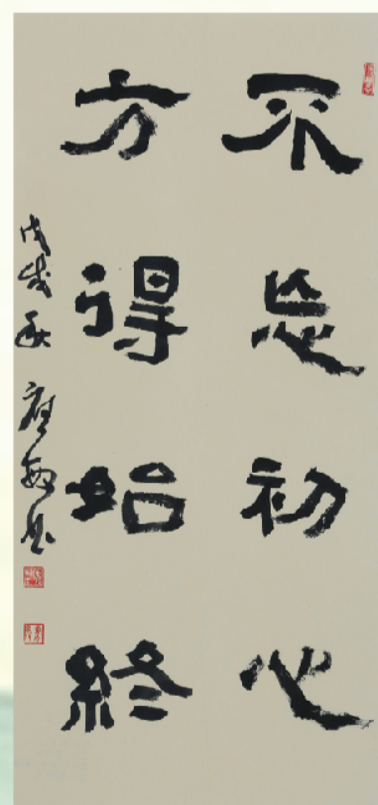 不忘初心
方得始终
戊戌秋